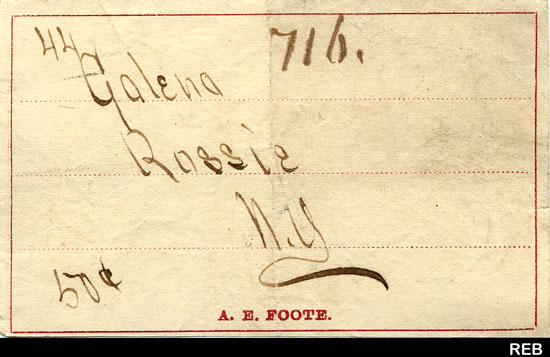 44 716.
Galena
Rossie
N.Y
50¢
A. E. FOOTE.
REB